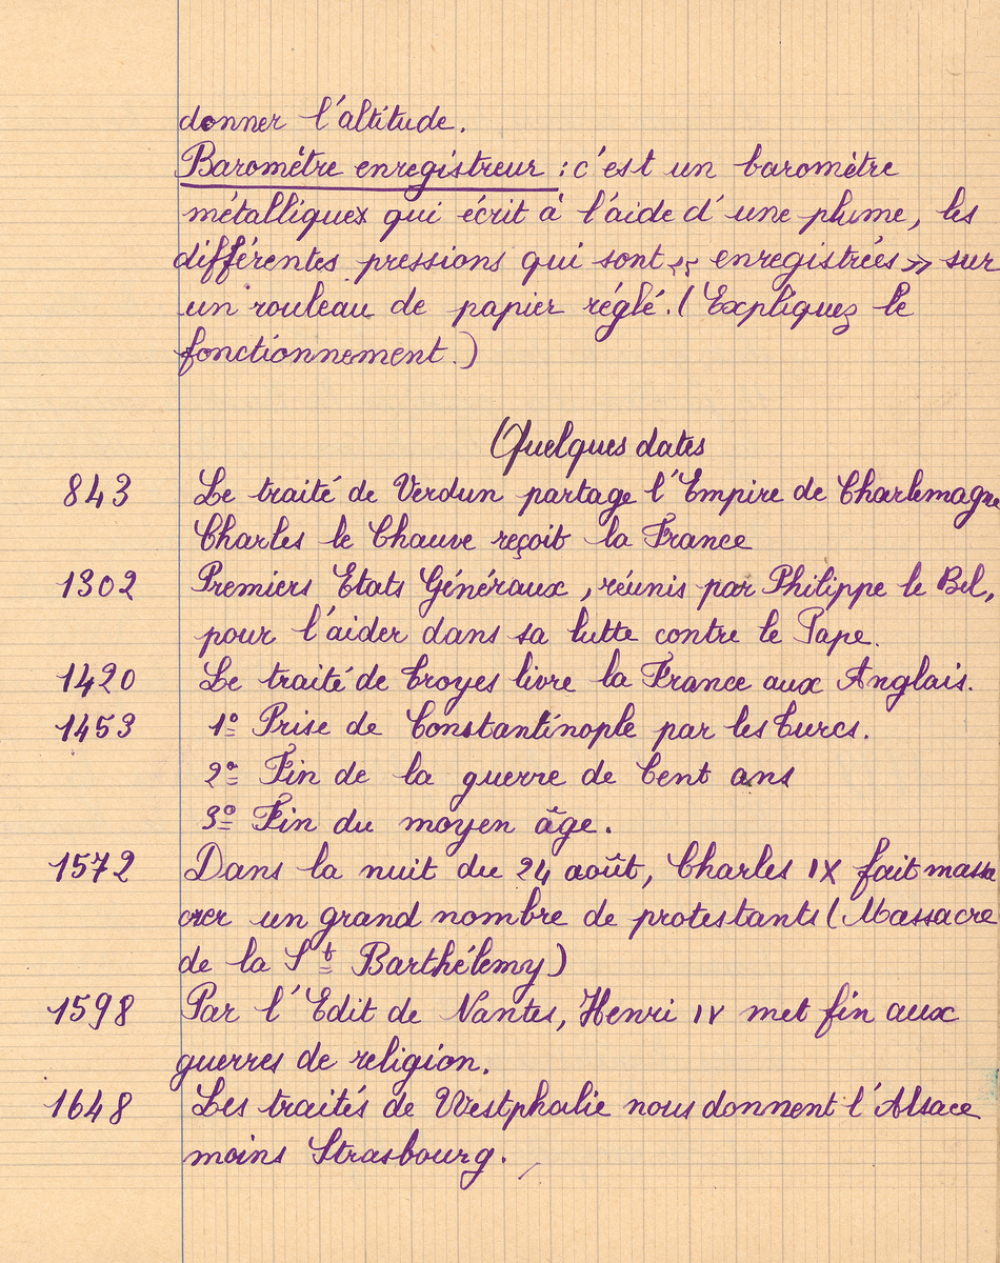 donner l'altitude.
Baromètre enregistreur : c'est un baromètre
métallique qui écrit à l'aide d'une plume, les
différentes pressions qui sont « enregistrées » sur
un rouleau de papier réglé. (Expliquez le
fonctionnement.)
Quelques dates
843 Le traité de Verdun partage l'Empire de Charlemagne
Charles le Chauve reçoit la France
1302 Premiers Etats Généraux, réunis par Philippe le Bel,
pour l'aider dans sa lutte contre le Pape.
1420 Le traité de Troyes livre la France aux Anglais.
1453 1º Prise de Constantinople par les Turcs.
2º Fin de la guerre de Cent ans
3º Fin du moyen âge.
1572 Dans la nuit du 24 août, Charles IX fait massa
crer un grand nombre de protestants (Massacre
de la St Barthélemy)
1598 Par l'Edit de Nantes, Henri IV met fin aux
guerres de religion.
1648 Les traités de Westphalie nous donnent l'Alsace
moins Strasbourg.